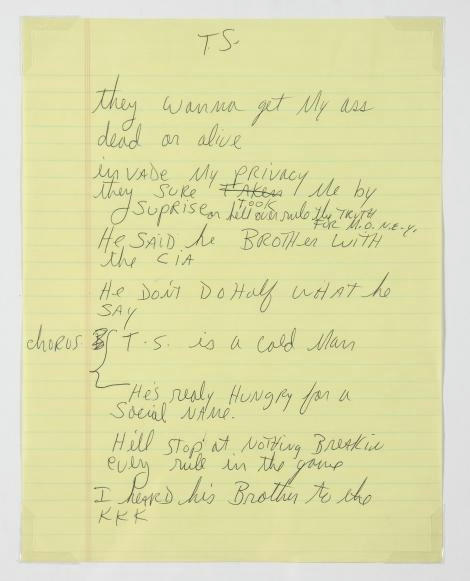 T.S.
they wanna get My ass
dead or alive
inVADE My PRIVACY
they SURE TAKEN Me by
TOOK
SUPRISE or hell over rule the TRUTH
FOR M.O.N.E.Y.
He SAID he BROTHER WITH
the CIA
He DON'T DO Half WHAT he
SAY
chorus T.S. is a cold Man
He's realy HUNGRY for a
Social NAME.
Hell STOP at NOTHING BREAKIN
every rule in the game
I heARD his Brother to the
KKK